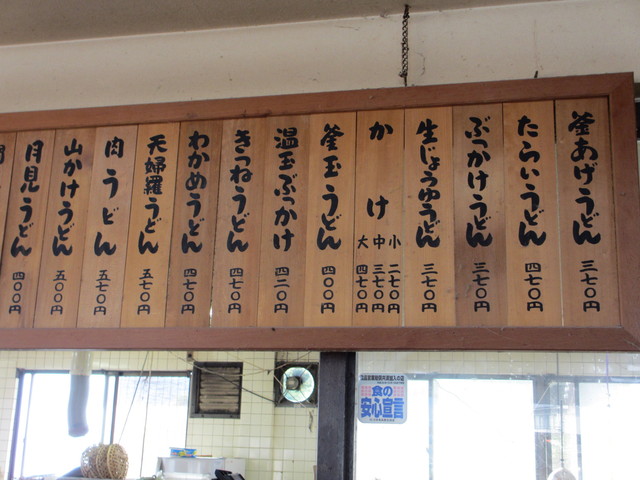 釜あげうどん 三七〇円
たらいうどん 四七〇円
ぶっかけうどん 三七〇円
生じょうゆうどん 三七〇円
かけ
小 二七〇円
中 三七〇円
大 四七〇円
釜玉うどん 四〇〇円
温玉ぶっかけ 四二〇円
きつねうどん 四七〇円
わかめうどん 四七〇円
天婦羅うどん 五七〇円
肉うどん 五七〇円
山かけうどん 五〇〇円
月見うどん 四〇〇円
食の
安心宣言